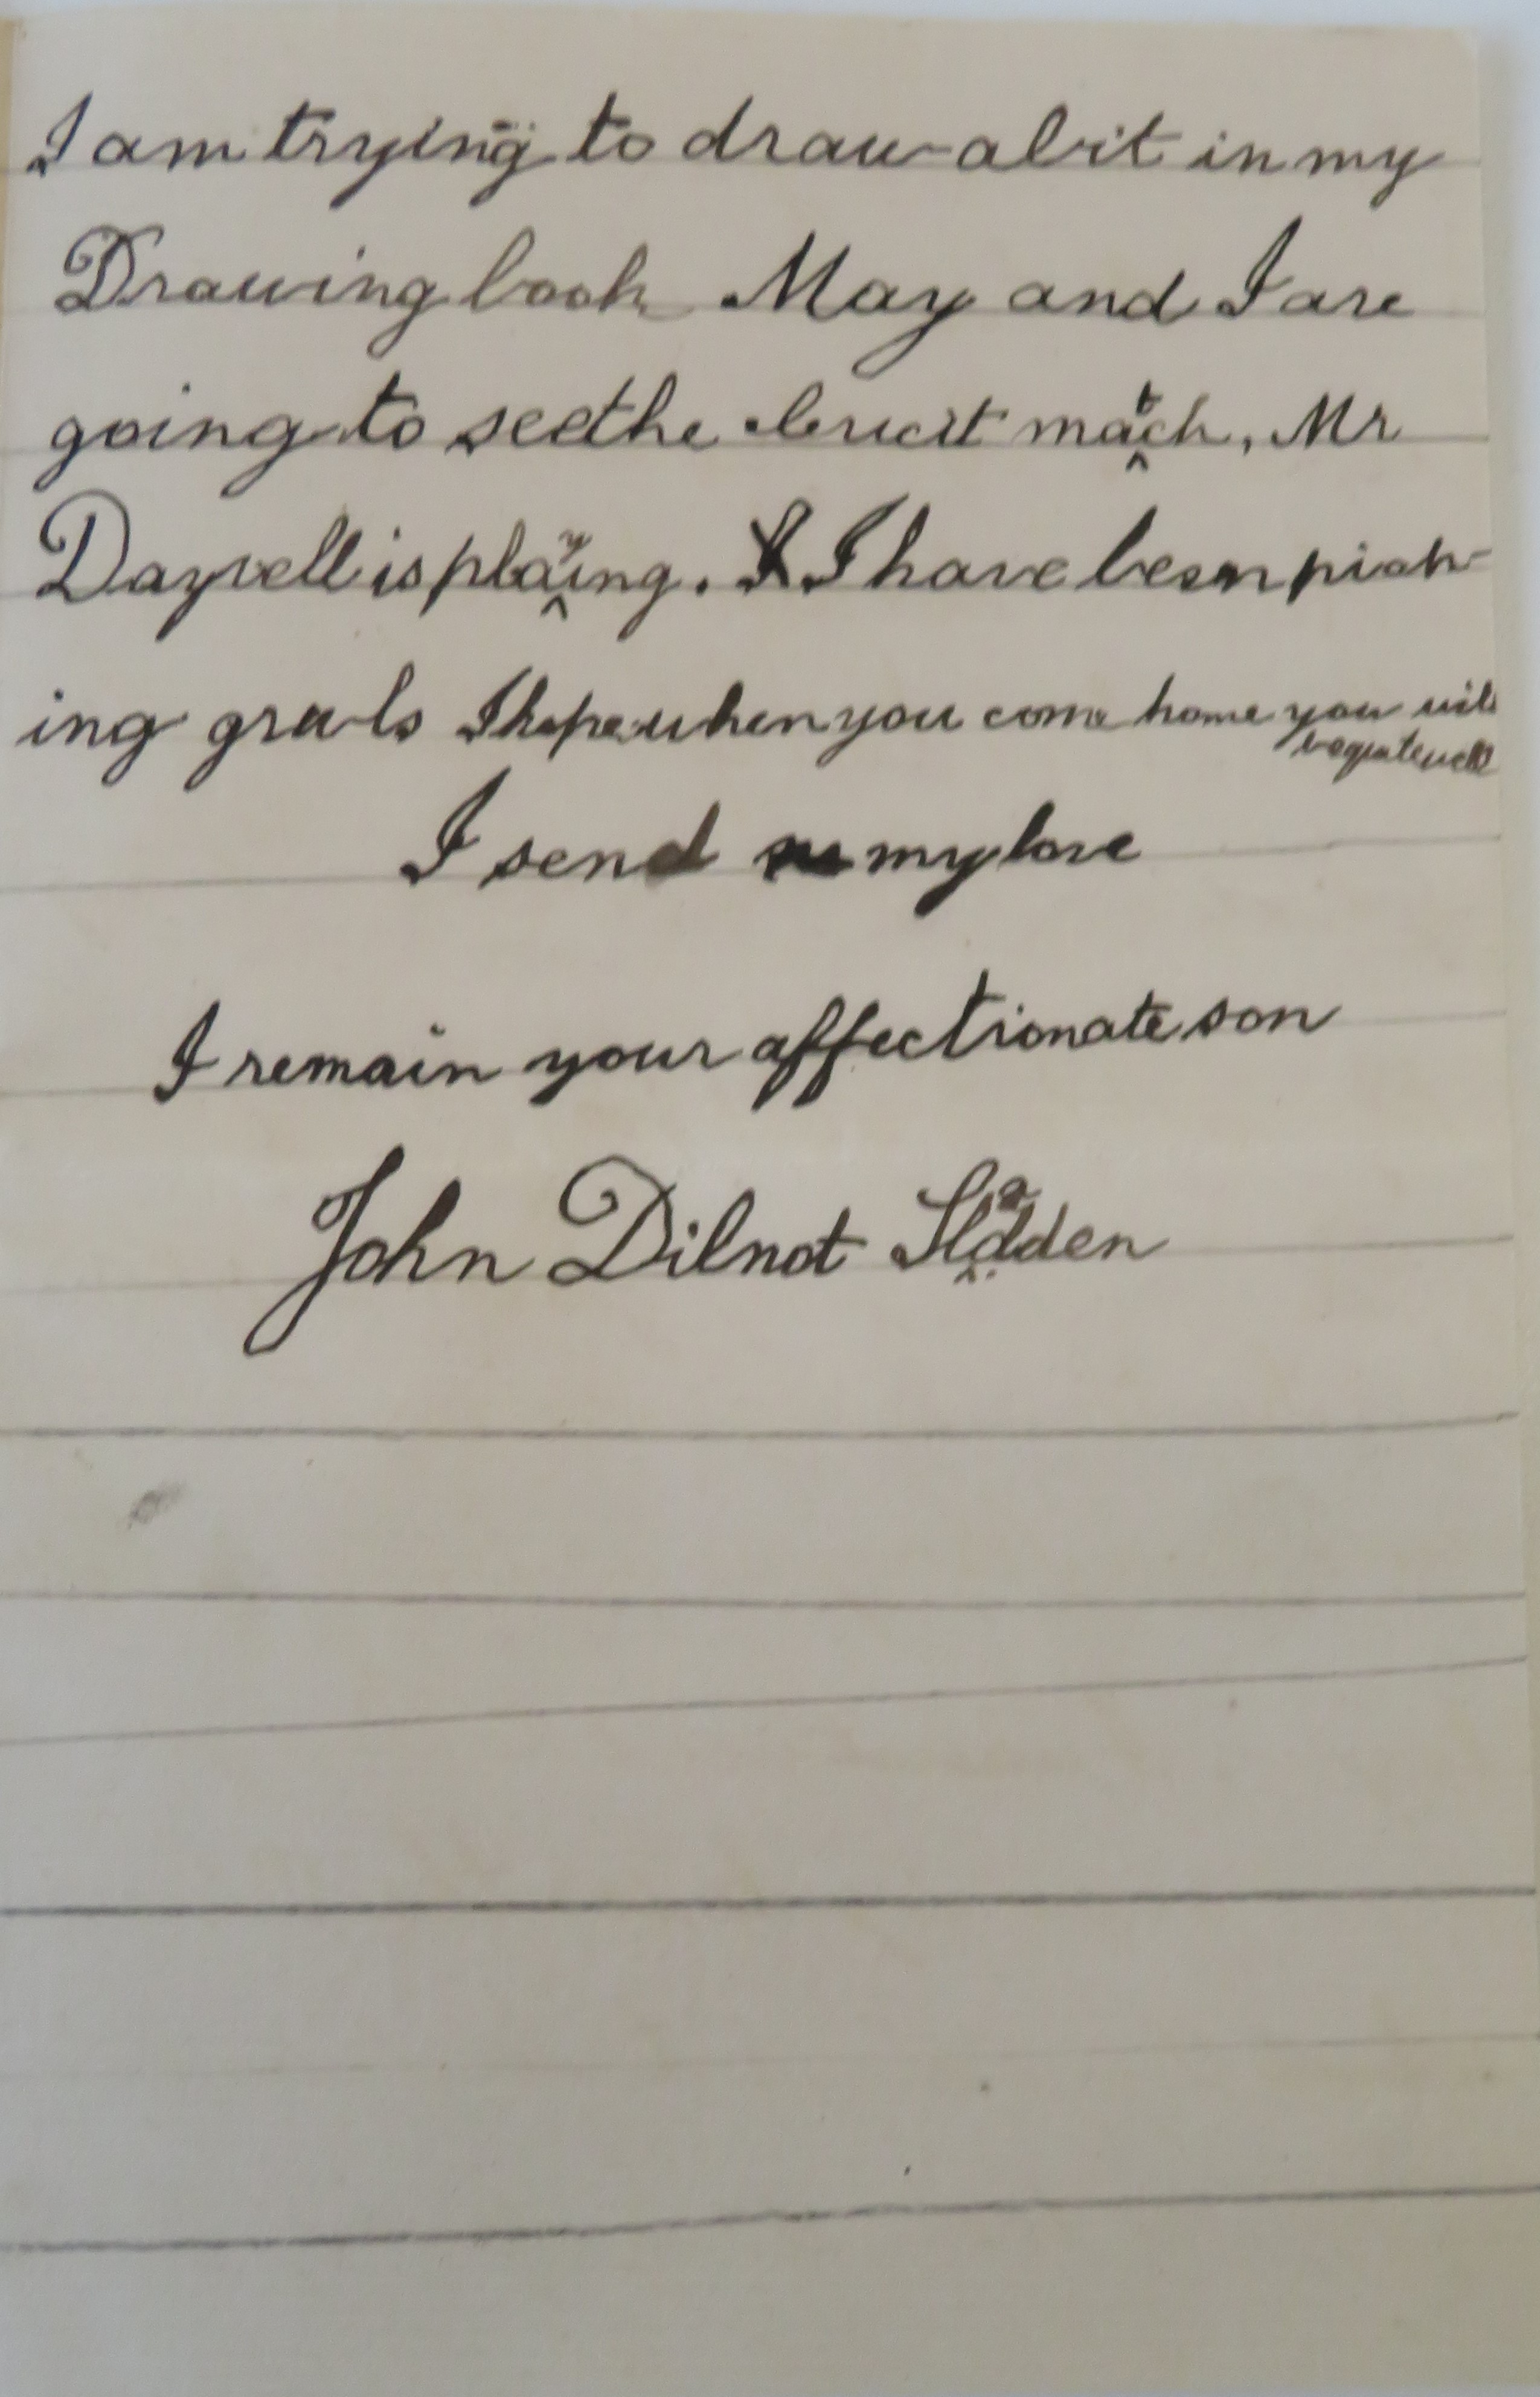 I am trying to draw a bit in my
Drawing book May and I are
going to see the match, Mr
Dayvell is playing. I I have been pick
ing I hope when you come home you will
be quite well
I send my love
I remain your affectionate son
John Dilnot Sladden